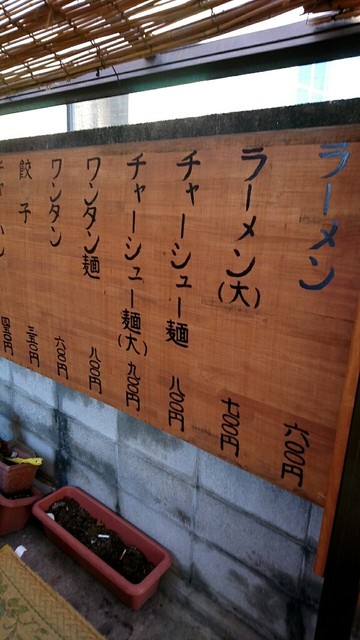 ラーメン 六〇〇円
ラーメン(大) 七〇〇円
チャーシュー麺 八〇〇円
チャーシュー麺(大) 九〇〇円
ワンタン麺 八〇〇円
ワンタン 六〇〇円
餃子 三五〇円